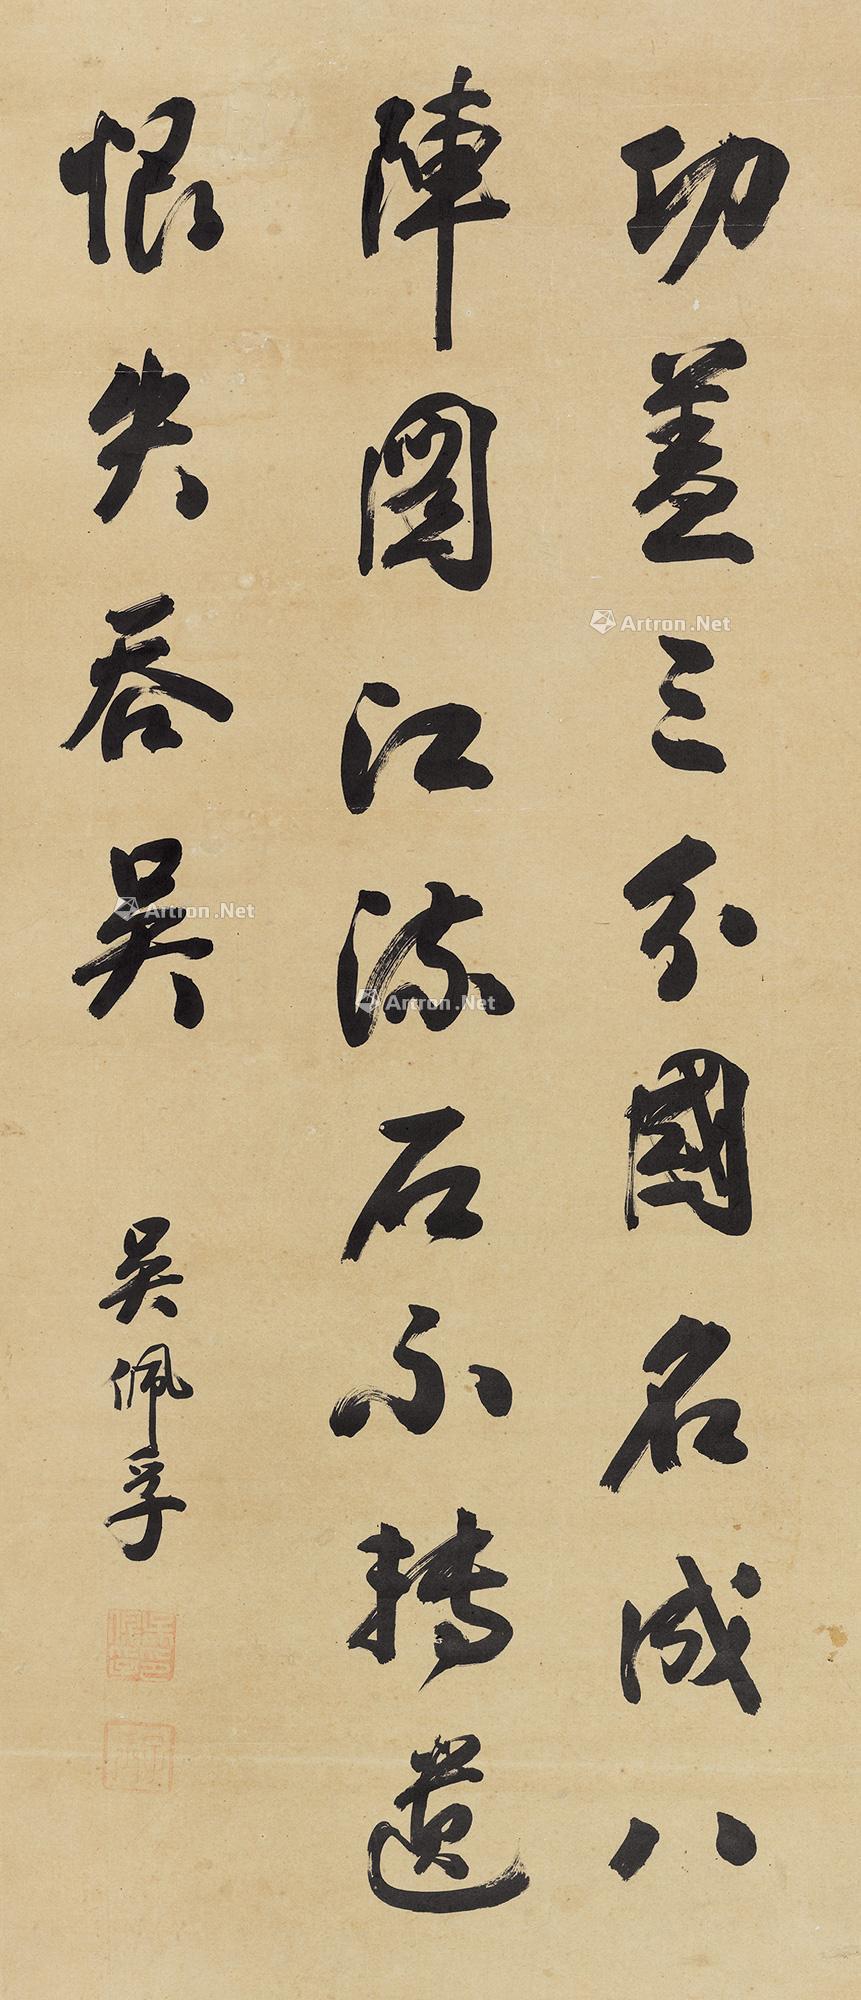 功蓋三分國名成八
陣圖江流石不轉遺
恨失吞吳
吳佩孚
Artron.Net
Artron.Net
Artron.Net